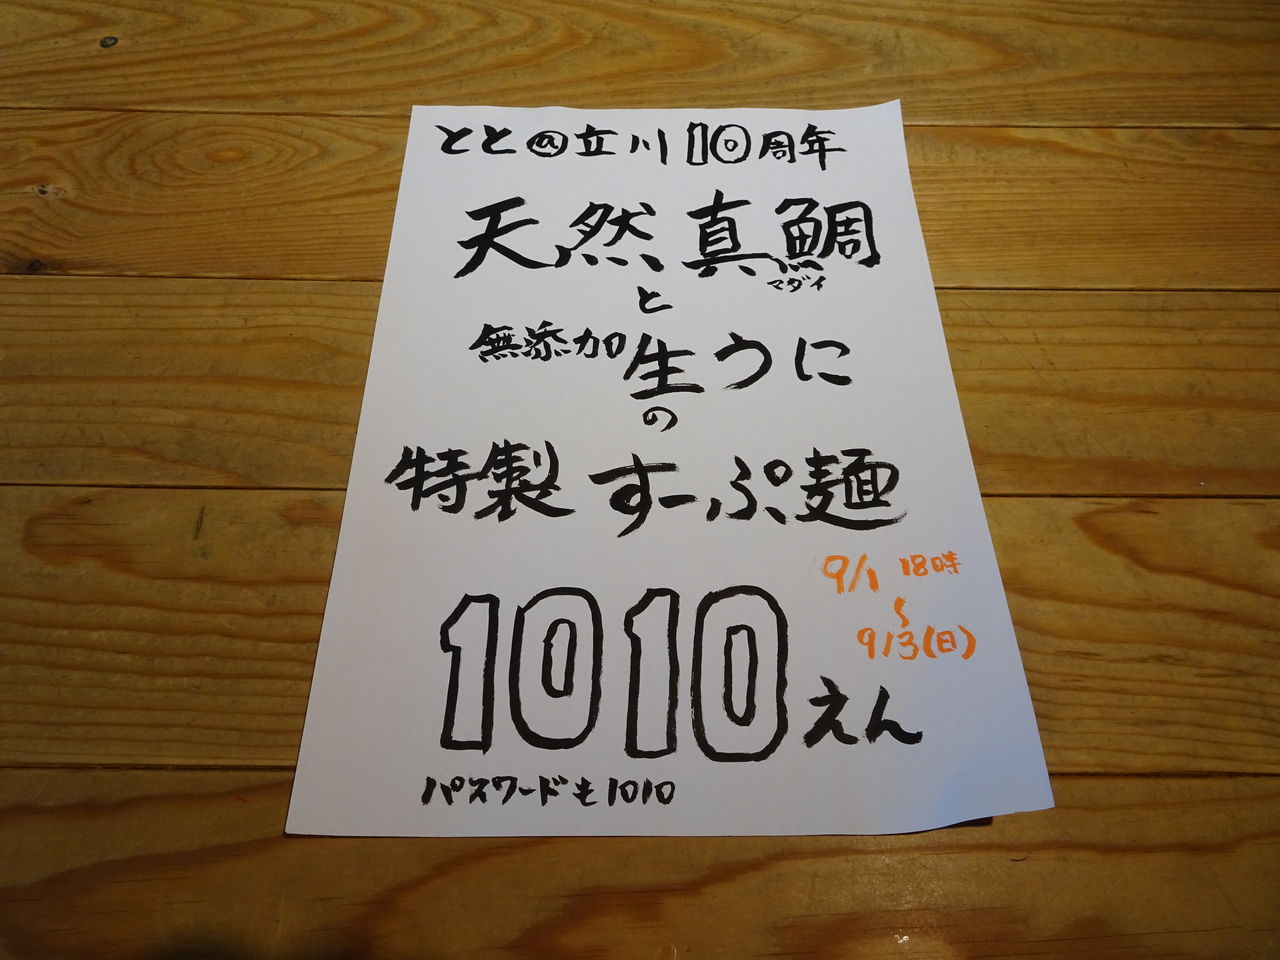 とと@立川10周年
天然真鯛
マダイ
と
無添加生うに
の
特製すーぷ麺
9/1 18時
〜
9/3(日)
1010えん
パスワードも1010